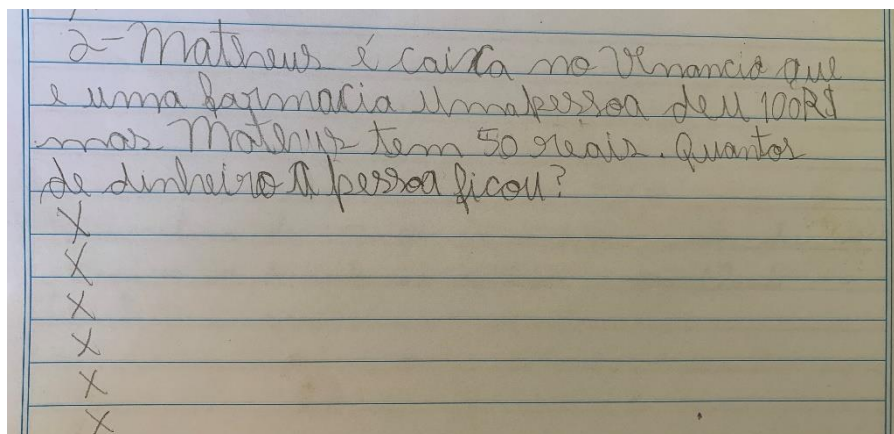 2-Matheus é caixa no Venancio que
e uma farmacia uma pessoa deu 100R$
mas Matheus tem 50 reais. Quantos
de dinheiro a pessoa ficou?
X
X
X
X
X
X